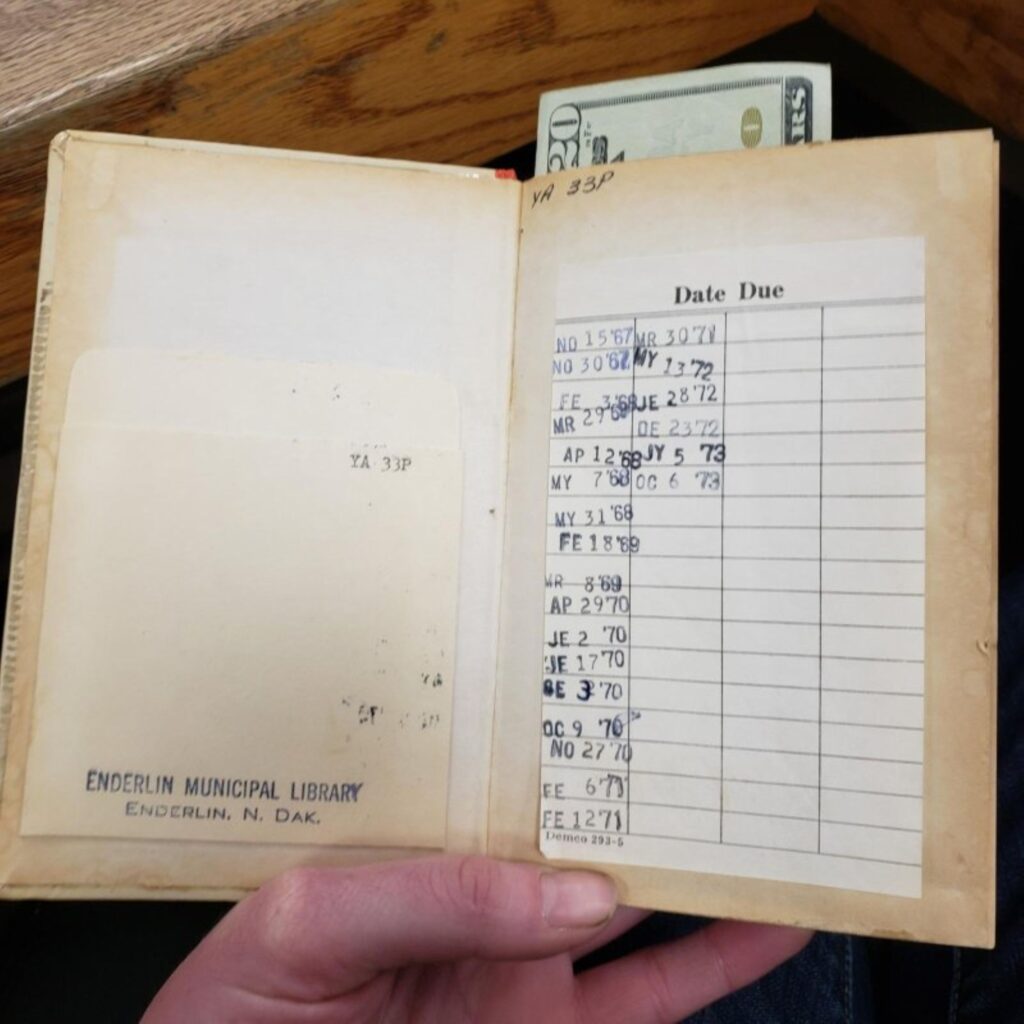 20
YA 33P
Date Due
NO 15 '67 MR 30 '71
NO 30 '67 MY 13 '72
FE 3 '68 JE 28 '72
MR 29 '68 DE 23 72
AP 12 '68 JY 5 73
MY 7 '68 OC 6 73
MY 31 '68
FE 18 '69
MR 8 '69
AP 29 '70
JE 2 '70
JE 17 '70
3 '70
OC 9 '70
NO 27 '70
FE 6 '71
FE 12 '71
Demco 293-5
YA 33P
ENDERLIN MUNICIPAL LIBRARY
ENDERLIN, N. DAK.